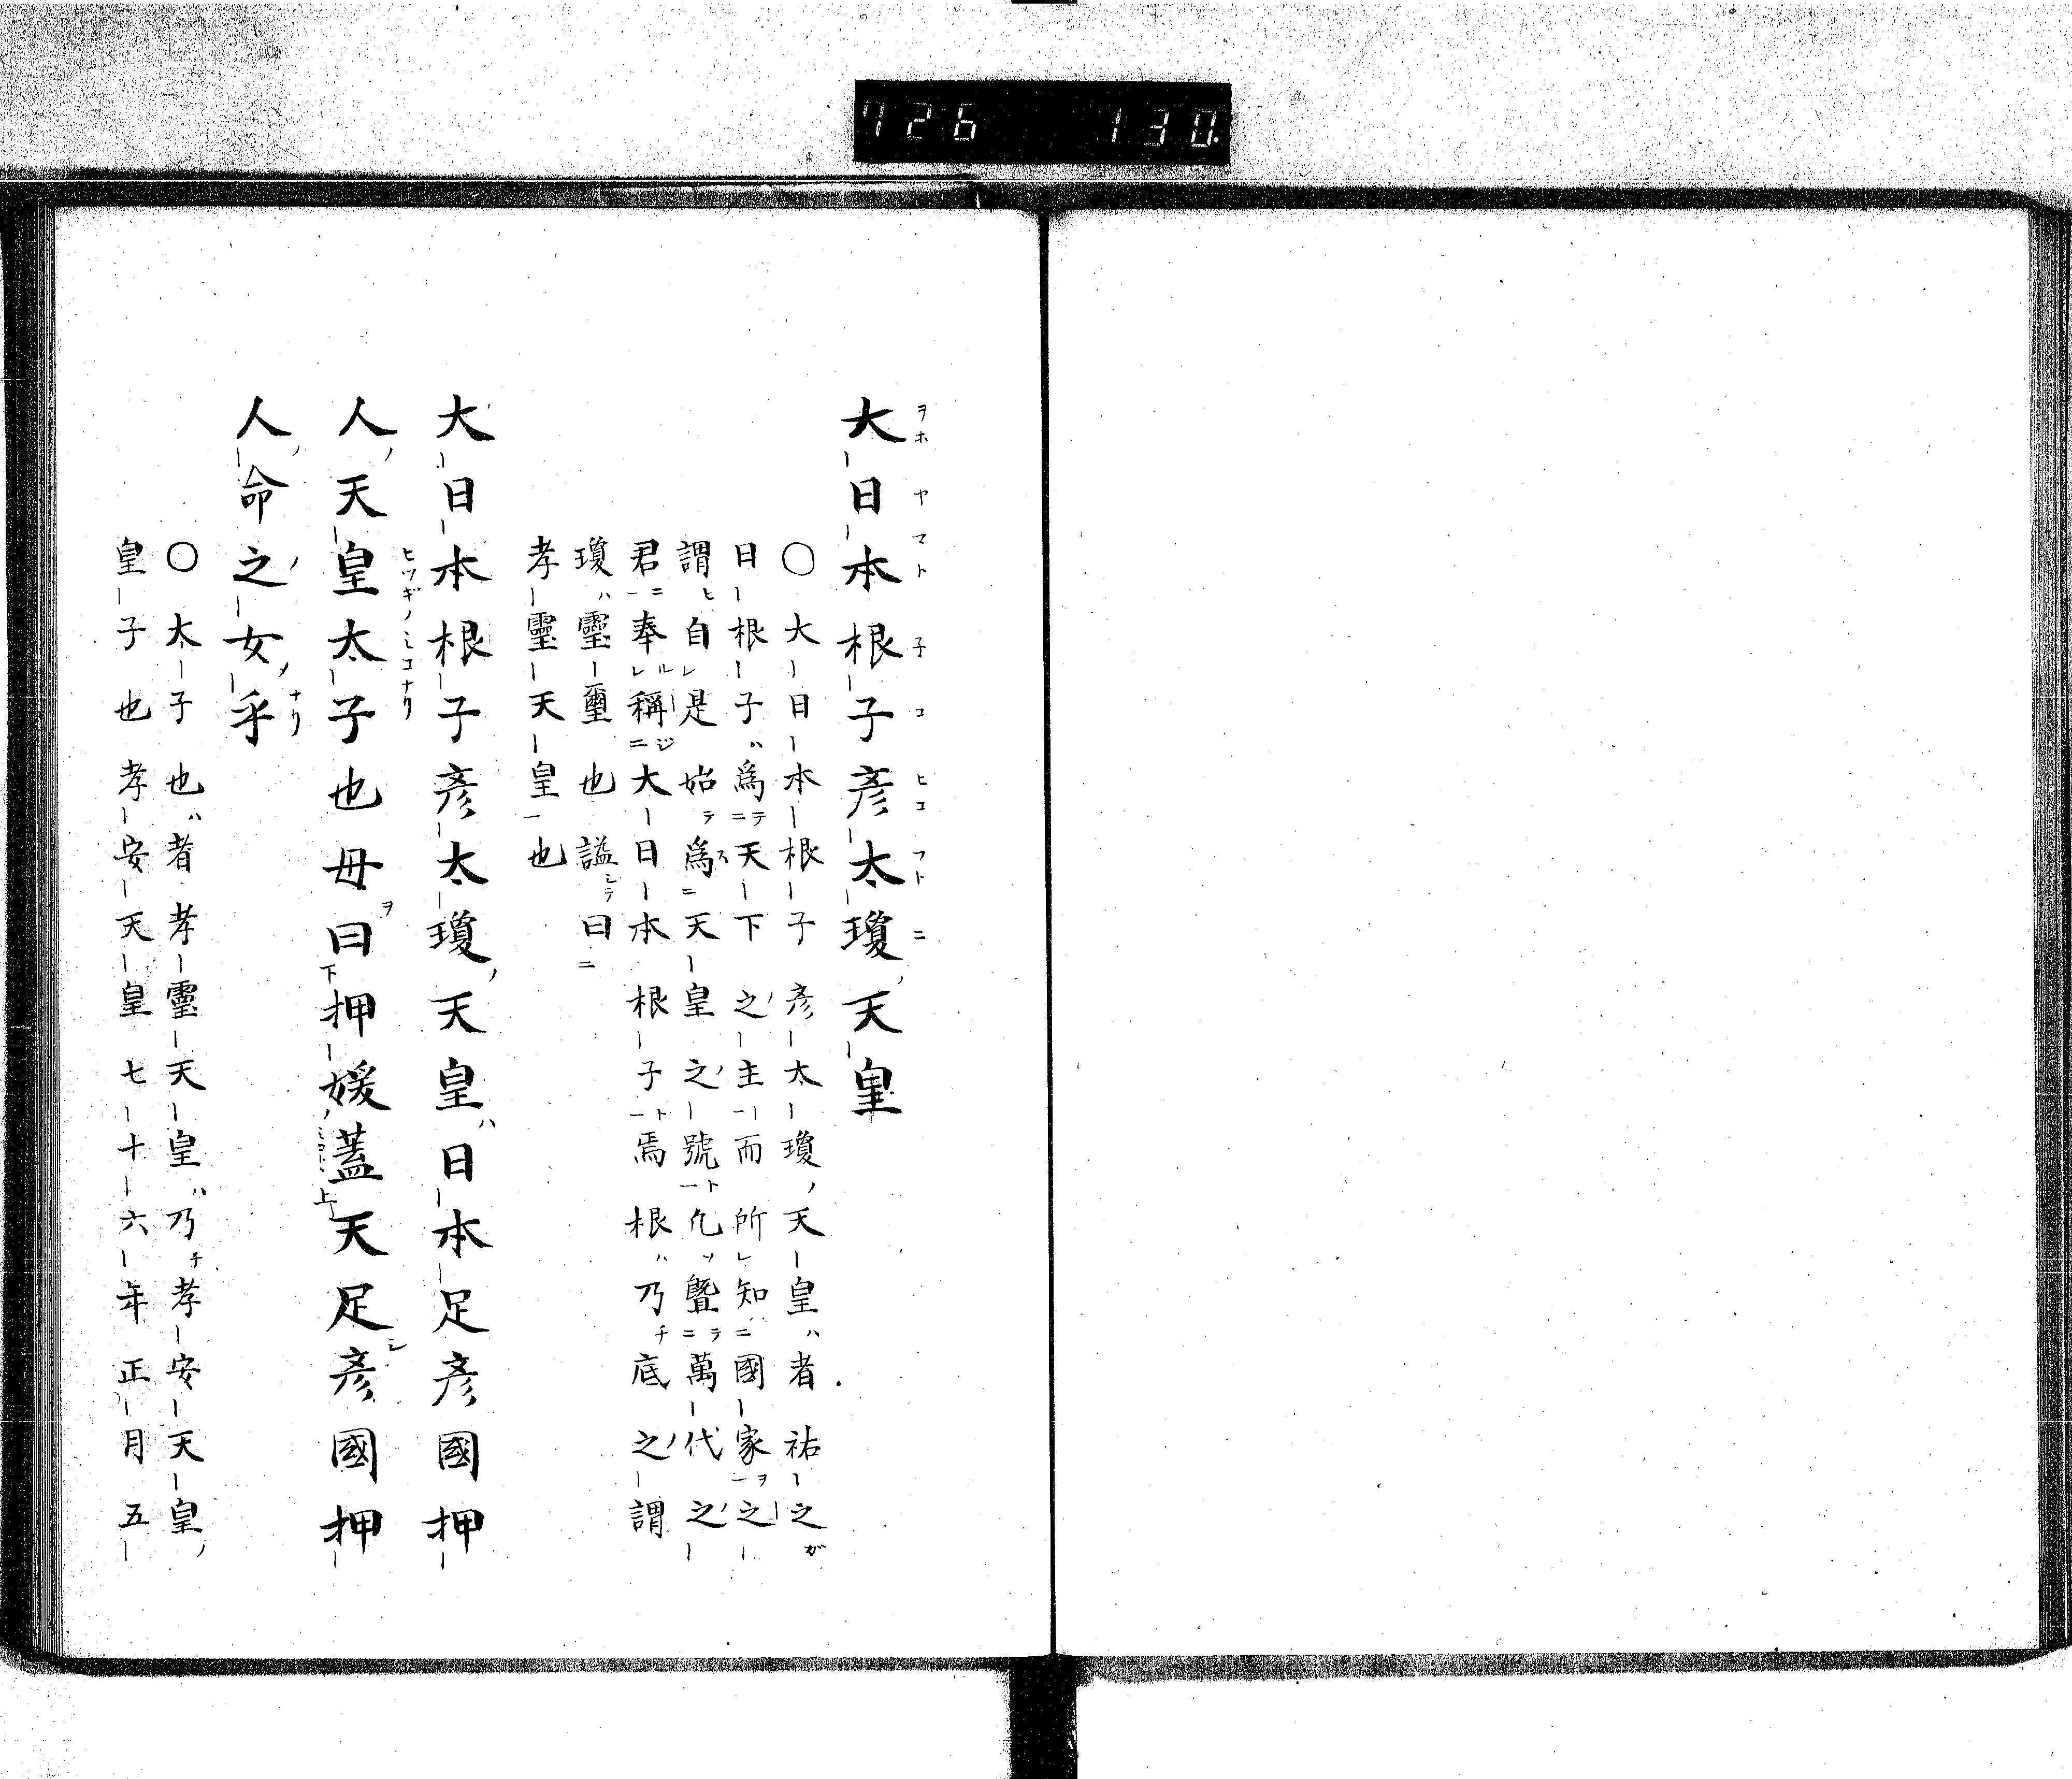 726 130.
大日本根子彦太瓊天皇
〇大日本根子彦太瓊天皇者祐之
日根子爲天下之主而所知國家之
謂自是始爲天皇之號凢曁萬代之
君奉稱大日本根子焉根乃底之謂
瓊靈璽也謚曰
孝靈天皇也
大日本根子彦太瓊天皇日本足彦國押
人天皇太子也母曰押媛蓋天足彦國押
人命之女乎
〇太子也者孝靈天皇乃孝安天皇
皇子也孝安天皇七十六年正月五